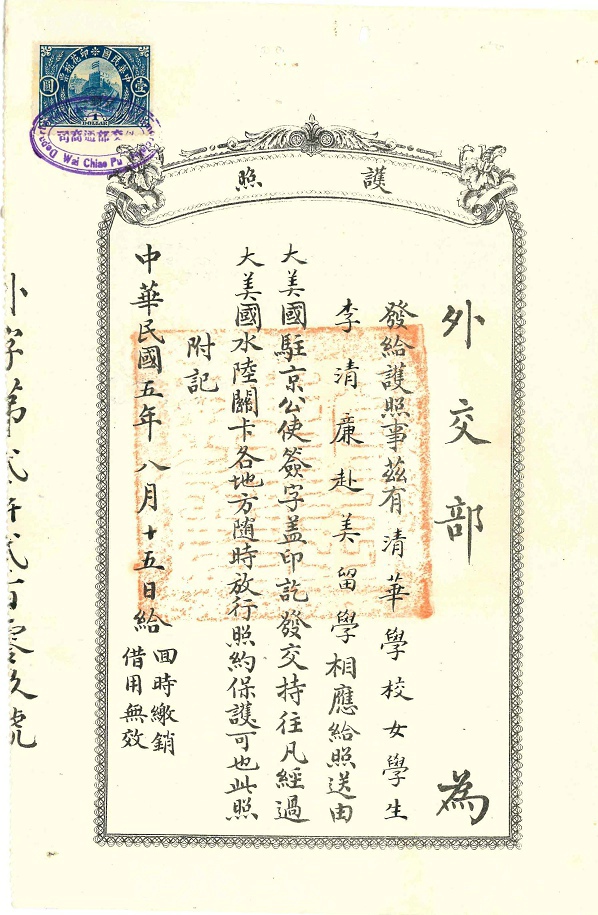 護照
外交部 為
發給護照事茲有清華學校女學生
李清廉赴美留學相應給照送由
大美國駐京公使簽字盖印訖發交持往凡經過
大美國水陸關卡各地方隨時放行照約保護可也此照
附記
中華民國五年八月十五日給
回時繳銷
借用無效
外字第貳仟貳百零玖號
中華民國印花稅票
壹圓
1
DOLLAR
外交部通商司
Wai Chiao Pu